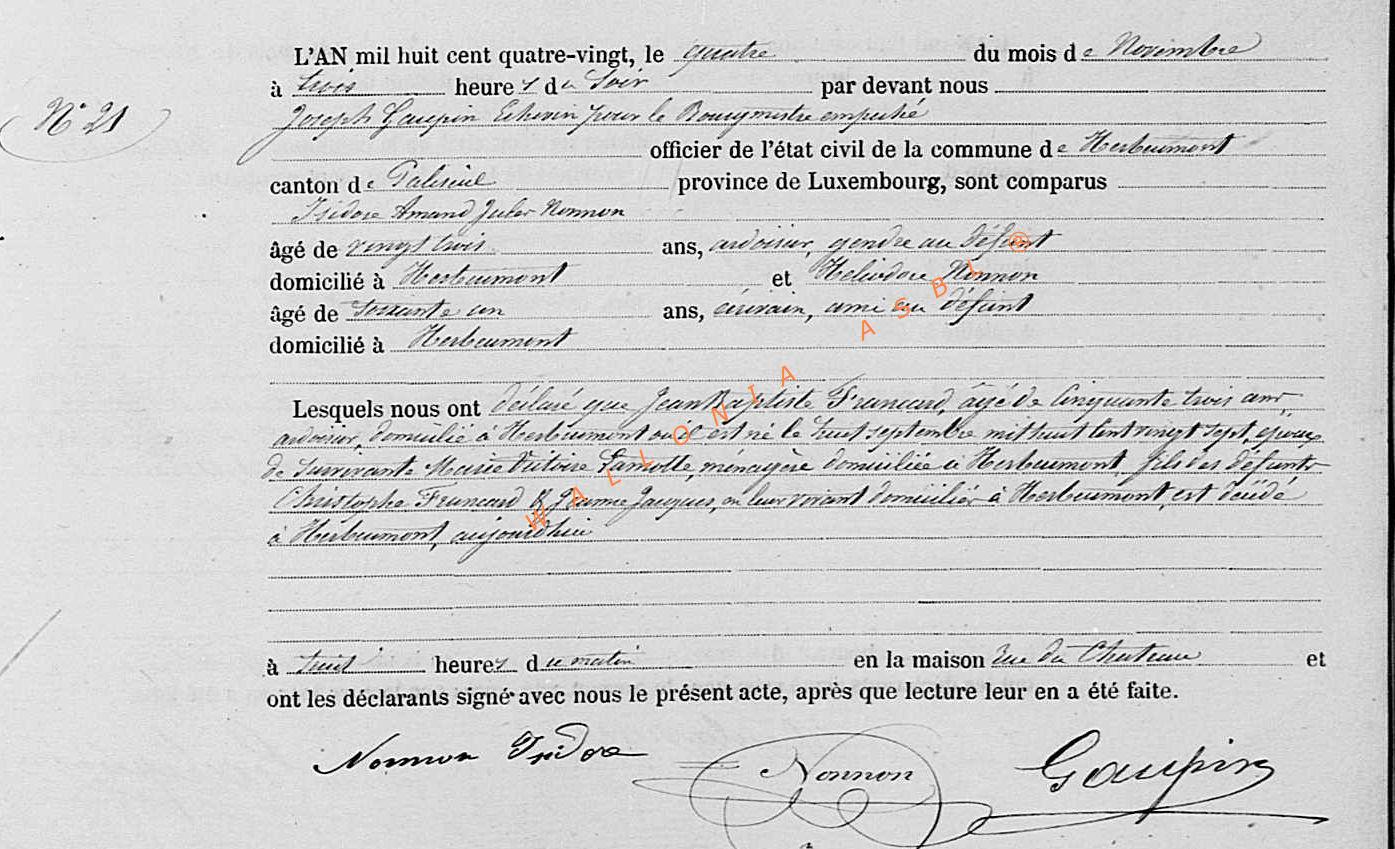 N° 21
L'AN mil huit cent quatre-vingt, le quatre du mois de Novembre
à trois heures du Soir par devant nous
Joseph Gaupin Echevin pour le Bourgmestre empêché
officier de l'état civil de la commune de Herbeumont
canton de Paliseul province de Luxembourg, sont comparus
Isidore Amand Jules Nonnon
âgé de vingt trois ans, ardoisier, gendre au défunt
domicilié à Herbeumont et Héliodore Nonnon
âgé de soixante un ans, ami au défunt
domicilié à Herbeumont
Lesquels nous ont déclaré que Jean Baptiste Francard, âgé de cinquante trois ans
ardoisier, domicilié à Herbeumont où il est né le huit septembre mil huit cent vingt sept, époux
de survivante Marie Victoire Lamotte, ménagère domiciliée à Herbeumont, fils des défunts
Christophe Francard & Jeanne Jacques, en leur vivant domiciliés à Herbeumont, est décédé
à Herbeumont, aujourd'hui
à huit heures du matin en la maison rue du Chateau et
ont les déclarants signé avec nous le présent acte, après que lecture leur en a été faite.
Nonnon Isidore Nonnon Gaupin
WALLONIA ASBL ®